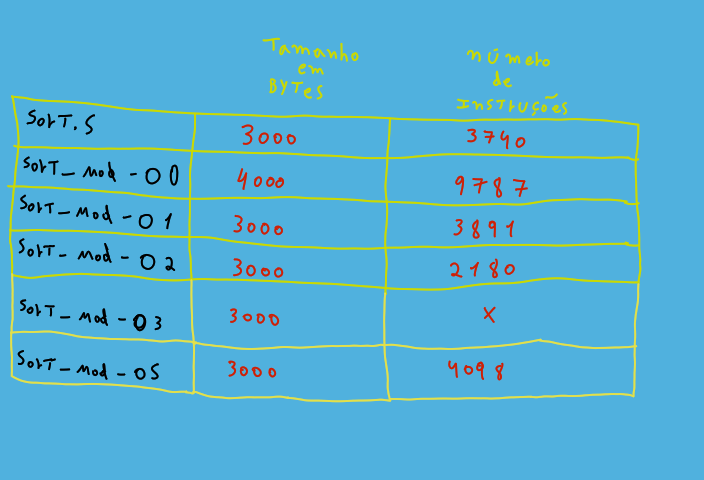 Tamanho
em
BYTES
número
de
INSTRUÇÕES
SorT.S 3000 3740
SorT_mod-O0 4000 9787
SorT_mod-O1 3000 3891
SorT_mod-O2 3000 2180
SorT_mod-O3 3000 X
SorT_mod-OS 3000 4098